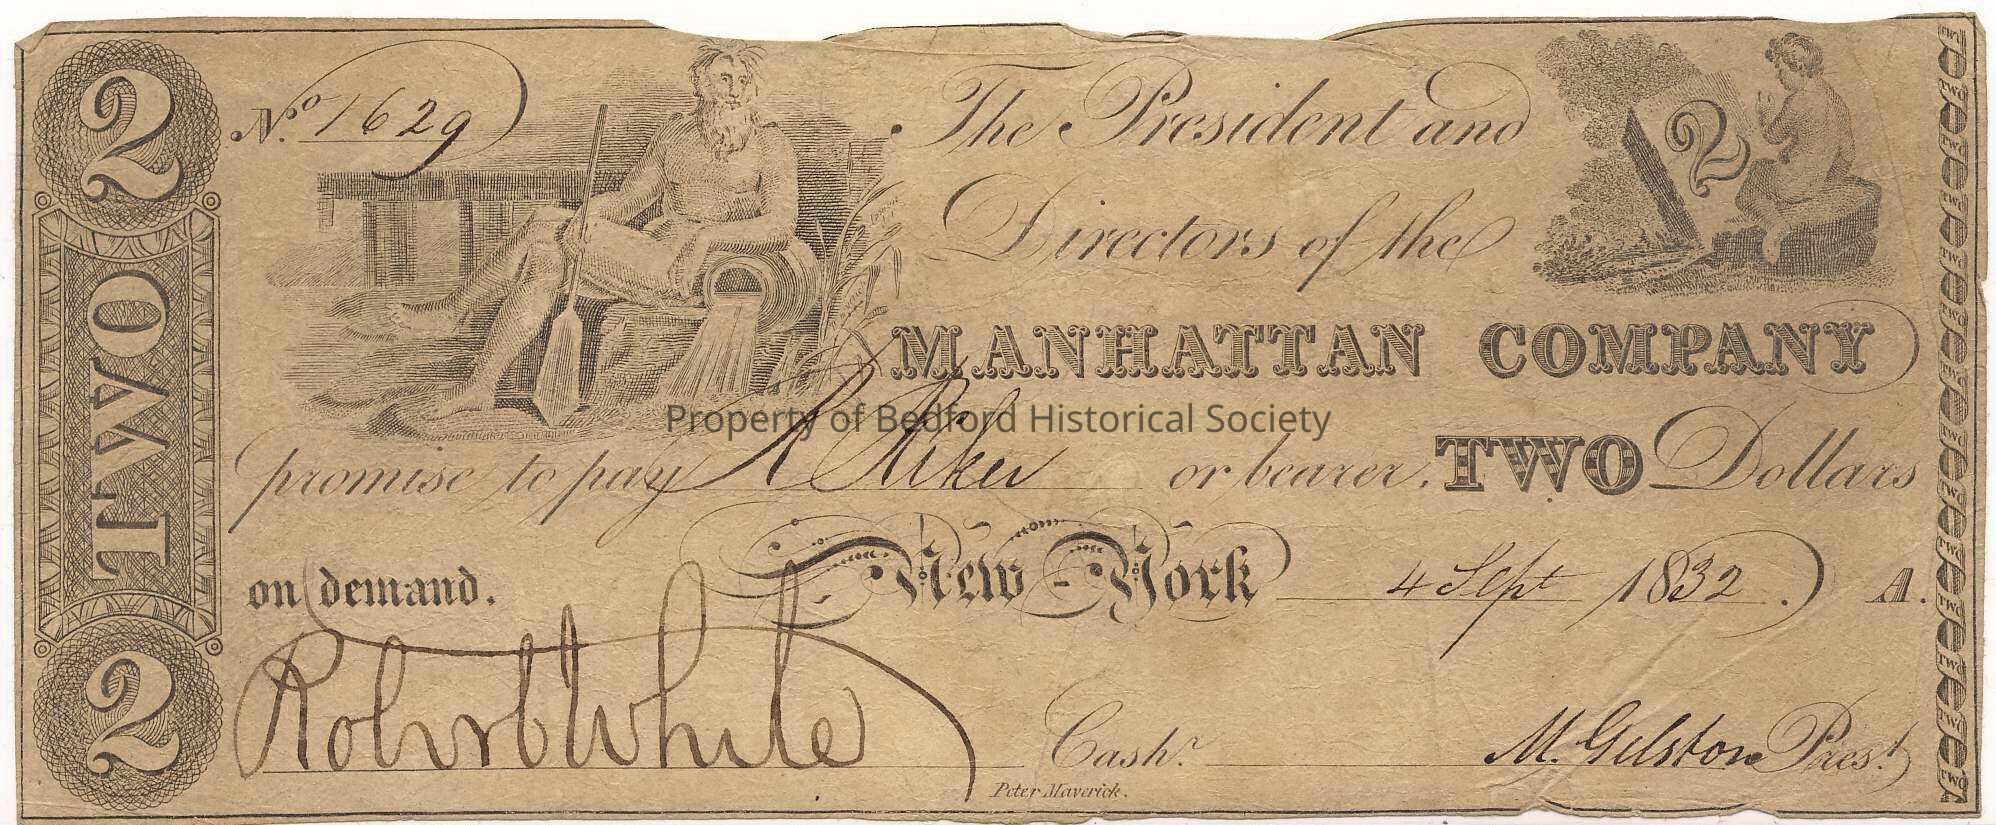 2
TWO
2
No. 1629
The President and
Directors of the
2
MANHATTAN COMPANY
Property of Bedford Historical Society
promise to pay R Riker or bearer, TWO Dollars
on demand. New-York 4 Sept 1832. A.
Robt White Cashr. M. Gelston Prest
Peter Maverick.